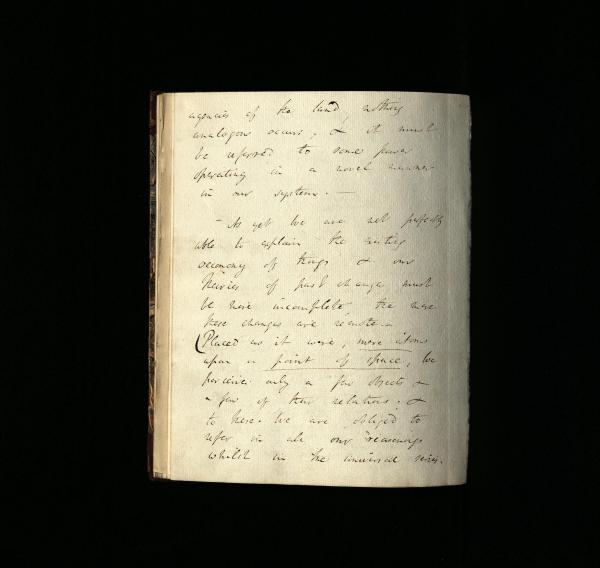 agencies of the land nothing
analogous occurs, & it must
be referred to some power
operating in a novel manner
in our system. —
— As yet we are not perfectly
able to explain the existing
oeconomy of things & our
theories of past change must
be more incomplete the more
these changes are remote. —
(Placed as it were, mere atoms
upon a point of space, we
perceive only a few objects &
a few of their relations; &
to these we are obliged to
refer in all our reasonings
whilst in the universal series.